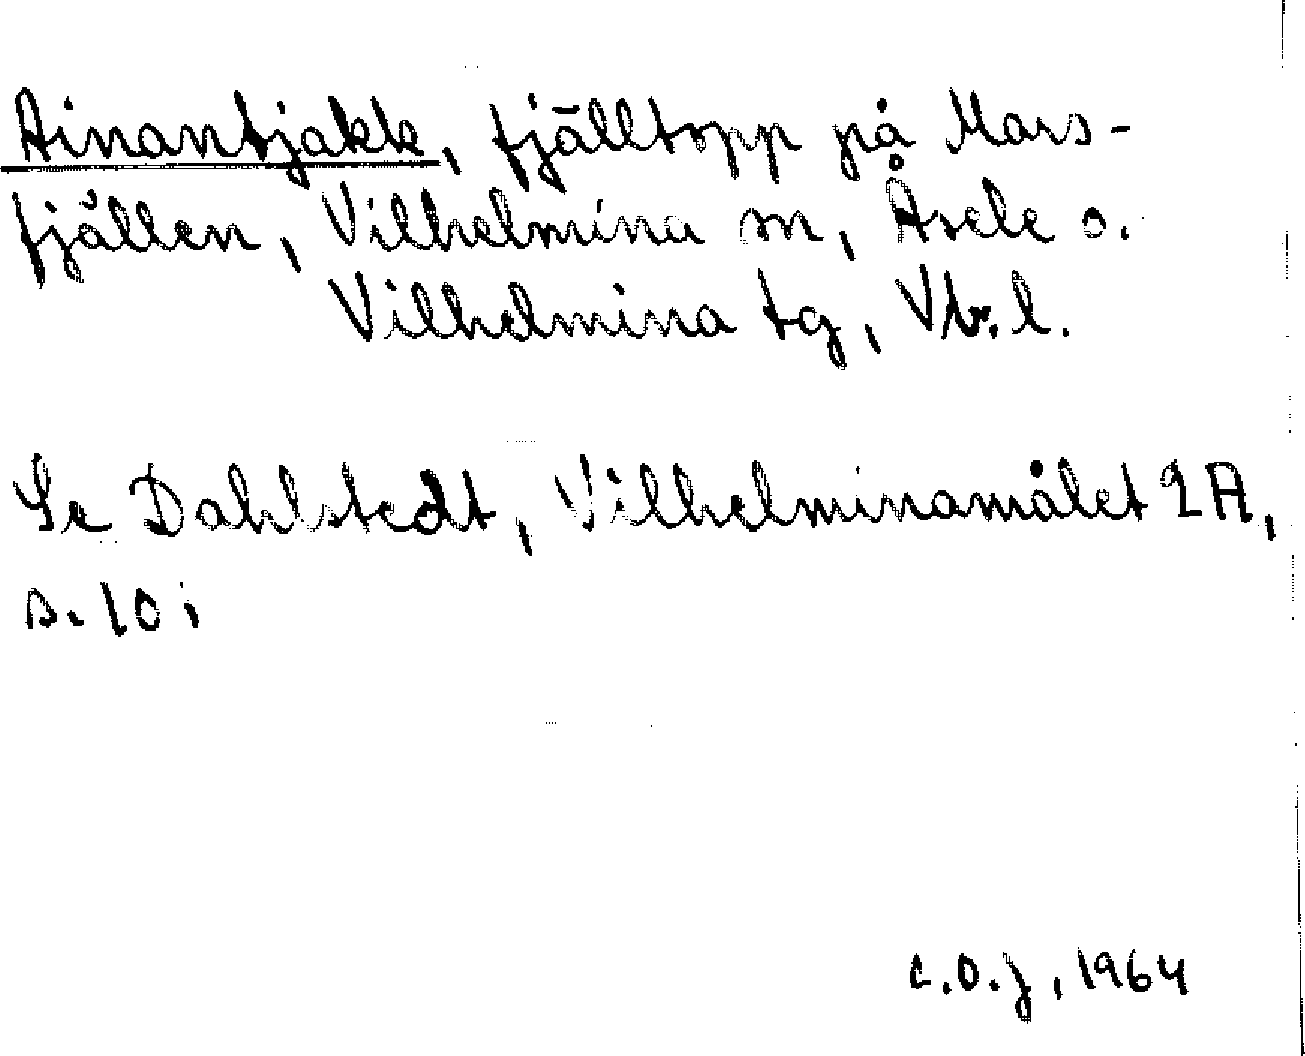 Ainantjakk, fjälltopp på Mars-
fjällen, Vilhelmina sn, Åsele o.
Vilhelmina tg, Vb. l.
Se Dahlstedt, Vilhelminamålet 2A,
s. 10;
C.O.J, 1964